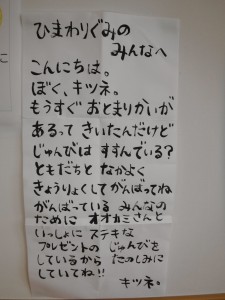 ひまわりぐみの
みんなへ
こんにちは。
ぼく、キツネ。
もうすぐ おとまりかいが
あるって きいたんだけど
じゅんびは すすんでいる?
ともだちと なかよく
きょうりょくして がんばってね
がんばっている みんなの
ために オオカミさんと
いっしょに ステキな
プレゼントの じゅんびを
しているから たのしみに
していてね!!
キツネ。